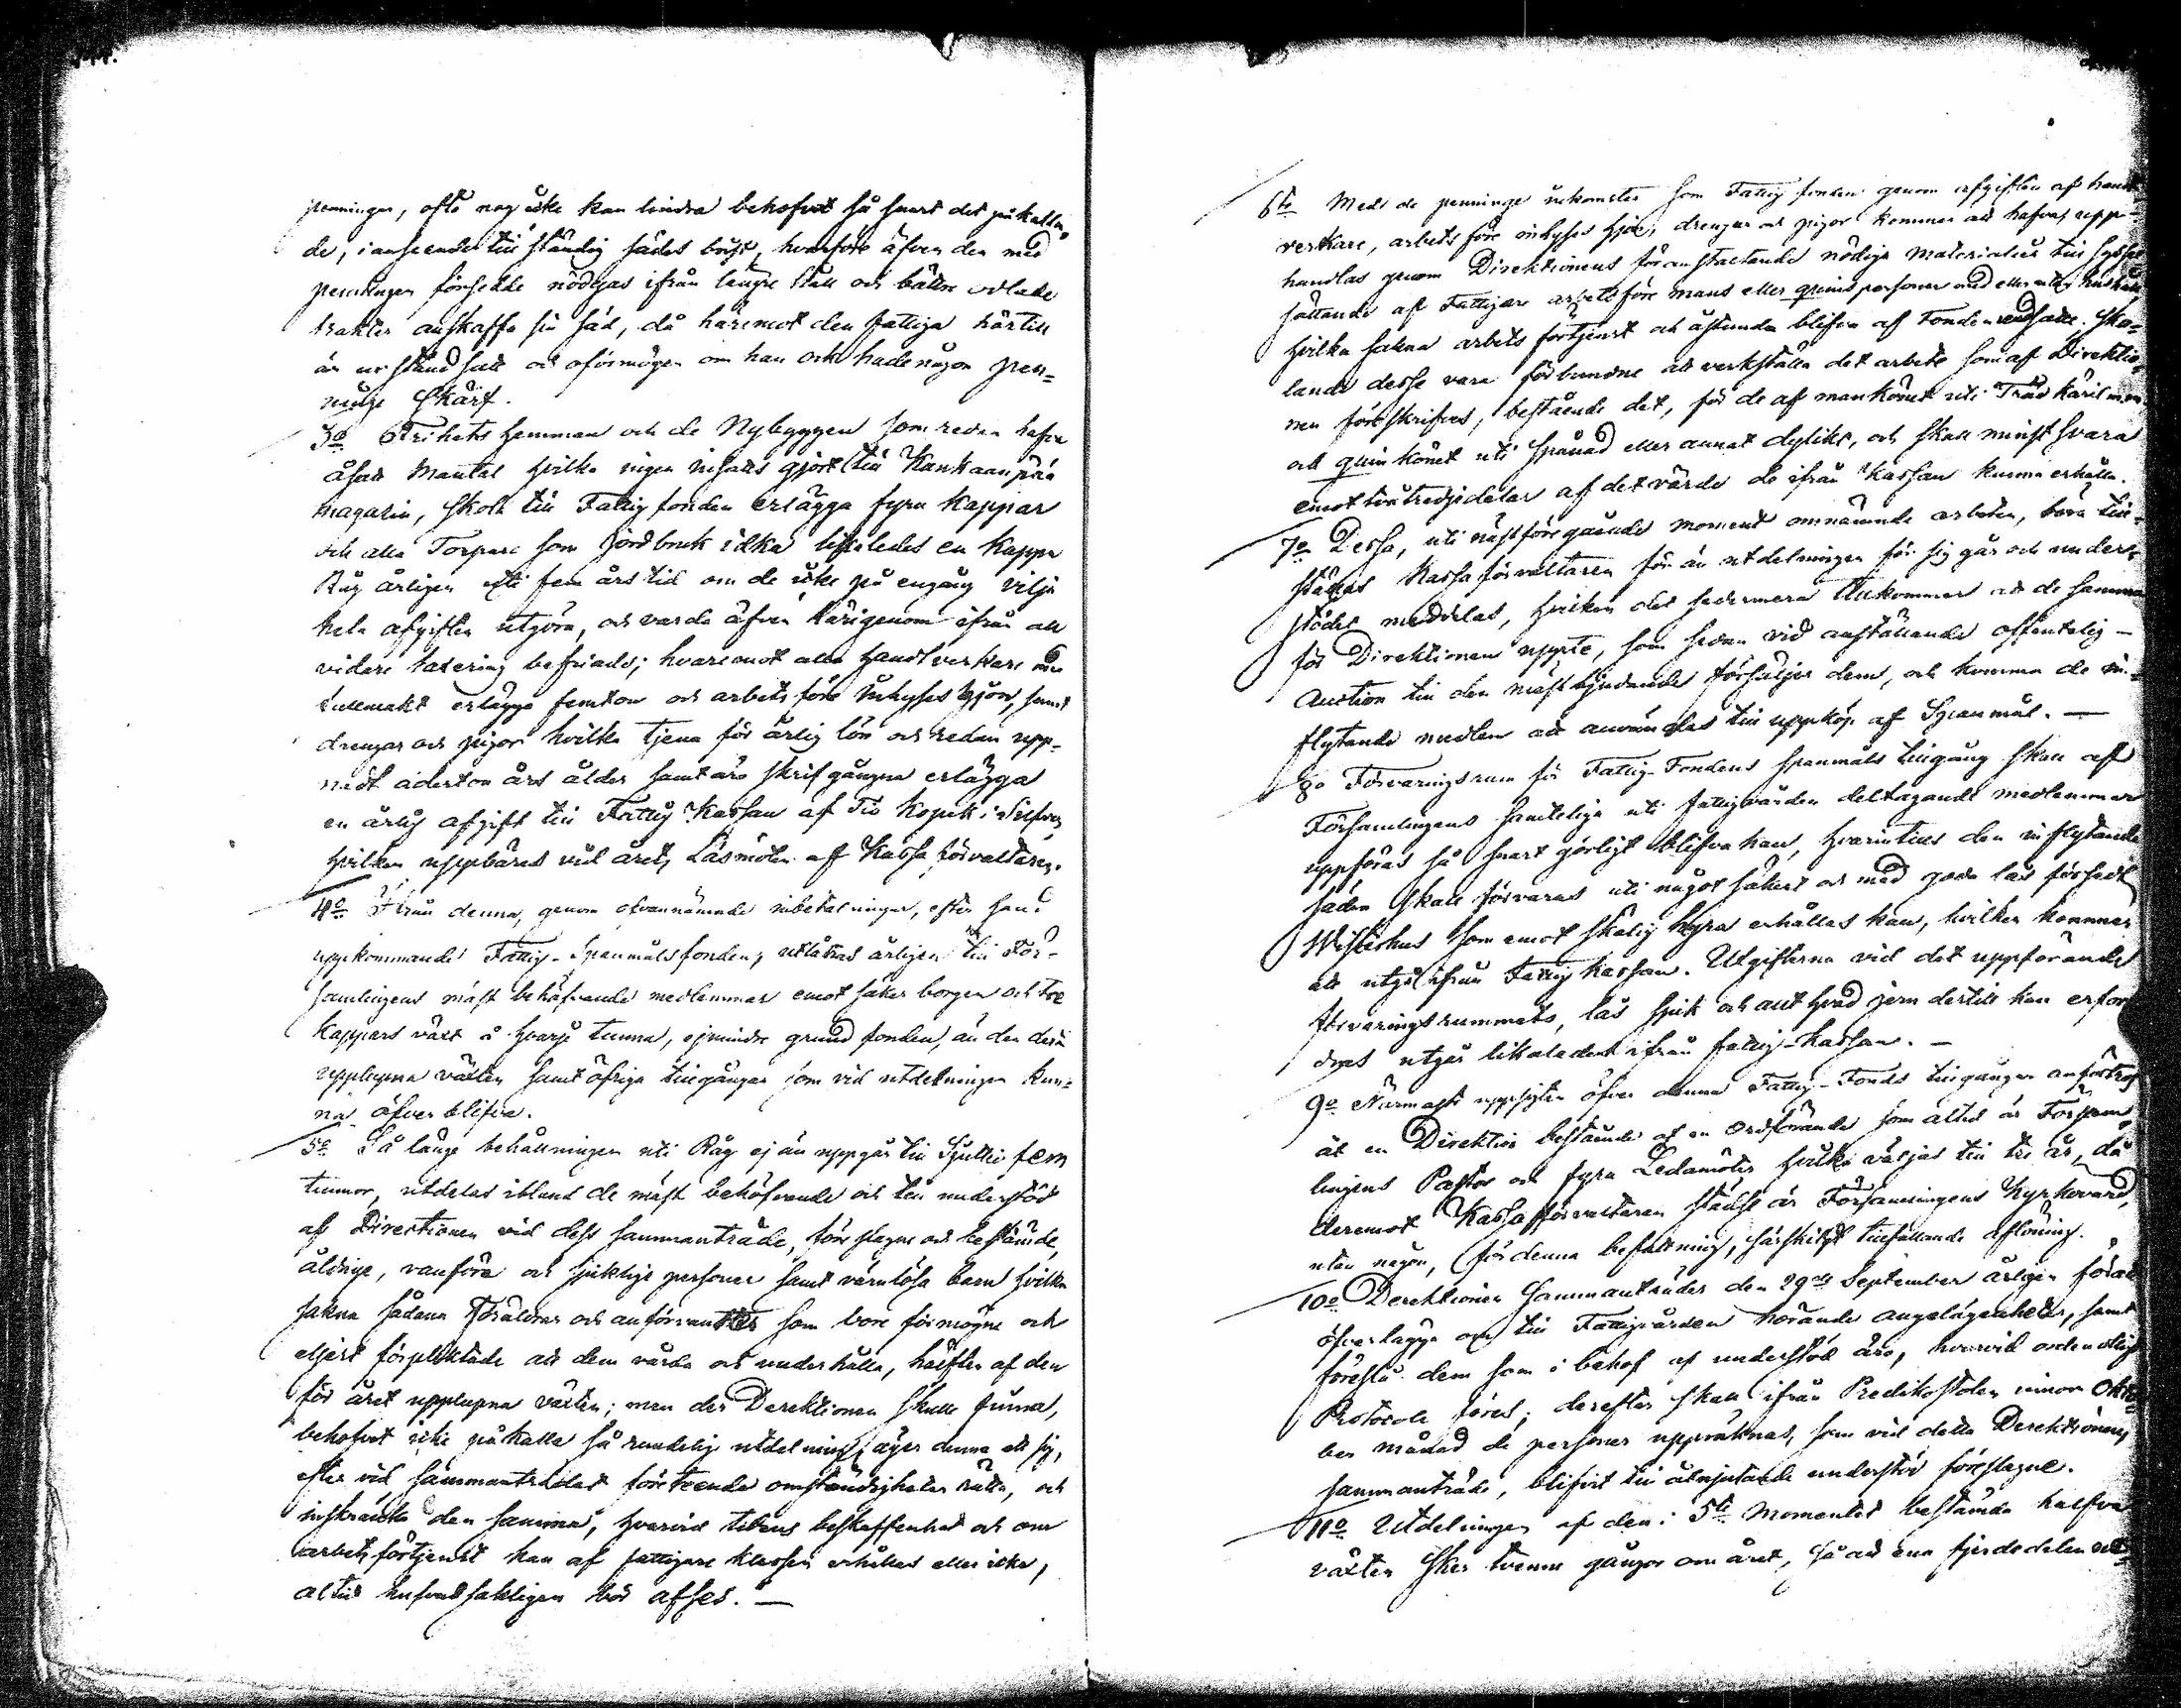 penningar, ofta nog icke kan lindra behofvet så snart det påkallas
de, i anseende till ständig sädes brist, hvarföre äfven den med
penningar försedde nödgas ifrån längre håll och bättre odlade
trakter anskaffa sin säd, då häremot den fattiga härtill
är urståndsatt och oförmögen om han ock hade någon pen-
ninge skärf.
3o Frihets hemman och de Nybyggen som redan hafva
åsatt Mantal hvilka ingen insatts gjort till Kankaanpää
magasin, skola till Fattigfonden erlägga fyra Kappar
och alla Torpare som jordbruk idka likaledes en Kappe
Råg årligen uti fem års tid om de icke på engång vilja
hela afgiften utgöra, och varda äfven härigenom ifrån all
vidare taxering befriade; hvaremot alla Handtverkare
erlägga femton och arbetsföre Inhyses hjon, samt
drengar och pigor hvilka tjena för årlig lön och redan upp-
nådt aderton års ålder samt äro skriftgångna erlägga
en årlig afgift till Fattig Kassan af Tio Kopek i Silfver,
hvilken uppbäres vid årets Läsmöten af Kassa förvaltaren.
4o Ifrån denna, genom ofvannämnde inbetalningar, efter hand
uppkommande Fattig-Spanmålsfonden, utlånas årligen till För-
samlingens mäst behöfvande medlemmar emot säker borgen och tre
Kappars växt å hvarje tunna, ej mindre grund fonden, än den derå
upplupna växten samt öfriga tillgångar som vid utdelningen kun-
na öfverblifva.
5o Så länge behållningen uti Råg ej än uppgår till Sjuttio fem
tunnor, utdelas ibland de mäst behöfvande och till understöd
af Direktionen vid dess sammanträde, föreslagne och bestämde
åldrige, vanföre och sjuklige personer samt värnlösa barn hvilka
sakna sådana Föräldrar och anförvanter som vore förmögne och
eljest förpliktade att dem vårda och underhålla, hälften af den
för året upplupna växten; men der Derektionen skulle finna,
behofvet icke påkalla så rundelig utdelning, äger denna att sig,
efter vid sammanträdet företeende omständigheter rätta, och
inskränka den samma, hvarvid tidens beskaffenhet och om
arbetsförtjenst kan af fattigare klassen erhållas eller icke,
altid hufvudsakligen bör afses. —
6te Med de penninge inkomster som Fattig fonden genom afgiften af handt-
verkare, arbetsföre inhyses hjon, drengar och pigor kommer att hafva, upp-
handlas genom Direktionens föranstaltande nödiga materialier till syssel-
sättande af Fattigare arbetsföre mans eller qvins personer med eller utan hushåll
hvilka sakna arbets förtjenst och åstunda blifva af Fonden undsatte. Sko-
lande desse vara förbundne att verkställa det arbete som af Direktio-
nen föreskrifves, bestående det, för de af mankönet uti Trädkäril men
och qvinkönet uti spånad eller annat dylikt, och skall minst svara
emot två tredjedelar af det värde de ifrån Kassan kunna erhålla.
7o Dessa, uti nästföregående moment omnämnde arbeten, böra till-
ställas Kassaförvaltaren förän utdelningen för sig går och under-
stödet meddelas, hvilken det sedermera tillkommer att de samma
för Direktionen uppte, som sedan vid anställande offentelig —
Auction till den mäst bjudande försäljer dem, och komma de in-
flytande medlen att användas till uppköp af Spanmål. —
8o Förvaringsrum för Fattig-Fondens spanmåls tillgång skall af
Församlingens samtelige uti fattigvården deltagande medlemmar
uppföras så snart görligt blifva kan, hvarintill den inflytande
säden skall förvaras uti något säkert och med goda lås försedt
Visthus som emot skälig hyra erhållas kan, hvilken kommer
att utgå ifrån Fattig kassan. Utgifterna vid det uppförande
förvarings rummets, lås spik och allt hvad jern dertill kan erfor-
dras utgår likaledes ifrån fattig-kassan. —
9o Närmaste uppsigten öfver denna Fattig-Fonds tillgångar anförtros
åt en Direktion bestående af en Ordförande som altid är Försam-
lingens Pastor och fyra Ledamöter, hvilka väljas till tre år, då
deremot Kassaförvaltaren städse är Församlingens Kyrkovärd,
utan någon, för denna befattning, särskilt tillfallande aflöning.
10o Derektionen Sammanträder den 29de September årligen för att
öfverlägga om till Fattigvården hörande angelägenheter, samt
föreslå dem som i behof af understöd äro, hvarvid ordentligt
Protocoll föres; derefter skall ifrån Predikstolen innom Okto-
ber månad de personer uppräknas, som vid detta Derektionens
sammanträde, blifvit till åtnjutande understöd föreslagne.
11o Utdelningen af den i 5te Momentet bestämda halfva
växten sker tvenne gångor om året, så att ena fjerdedelen